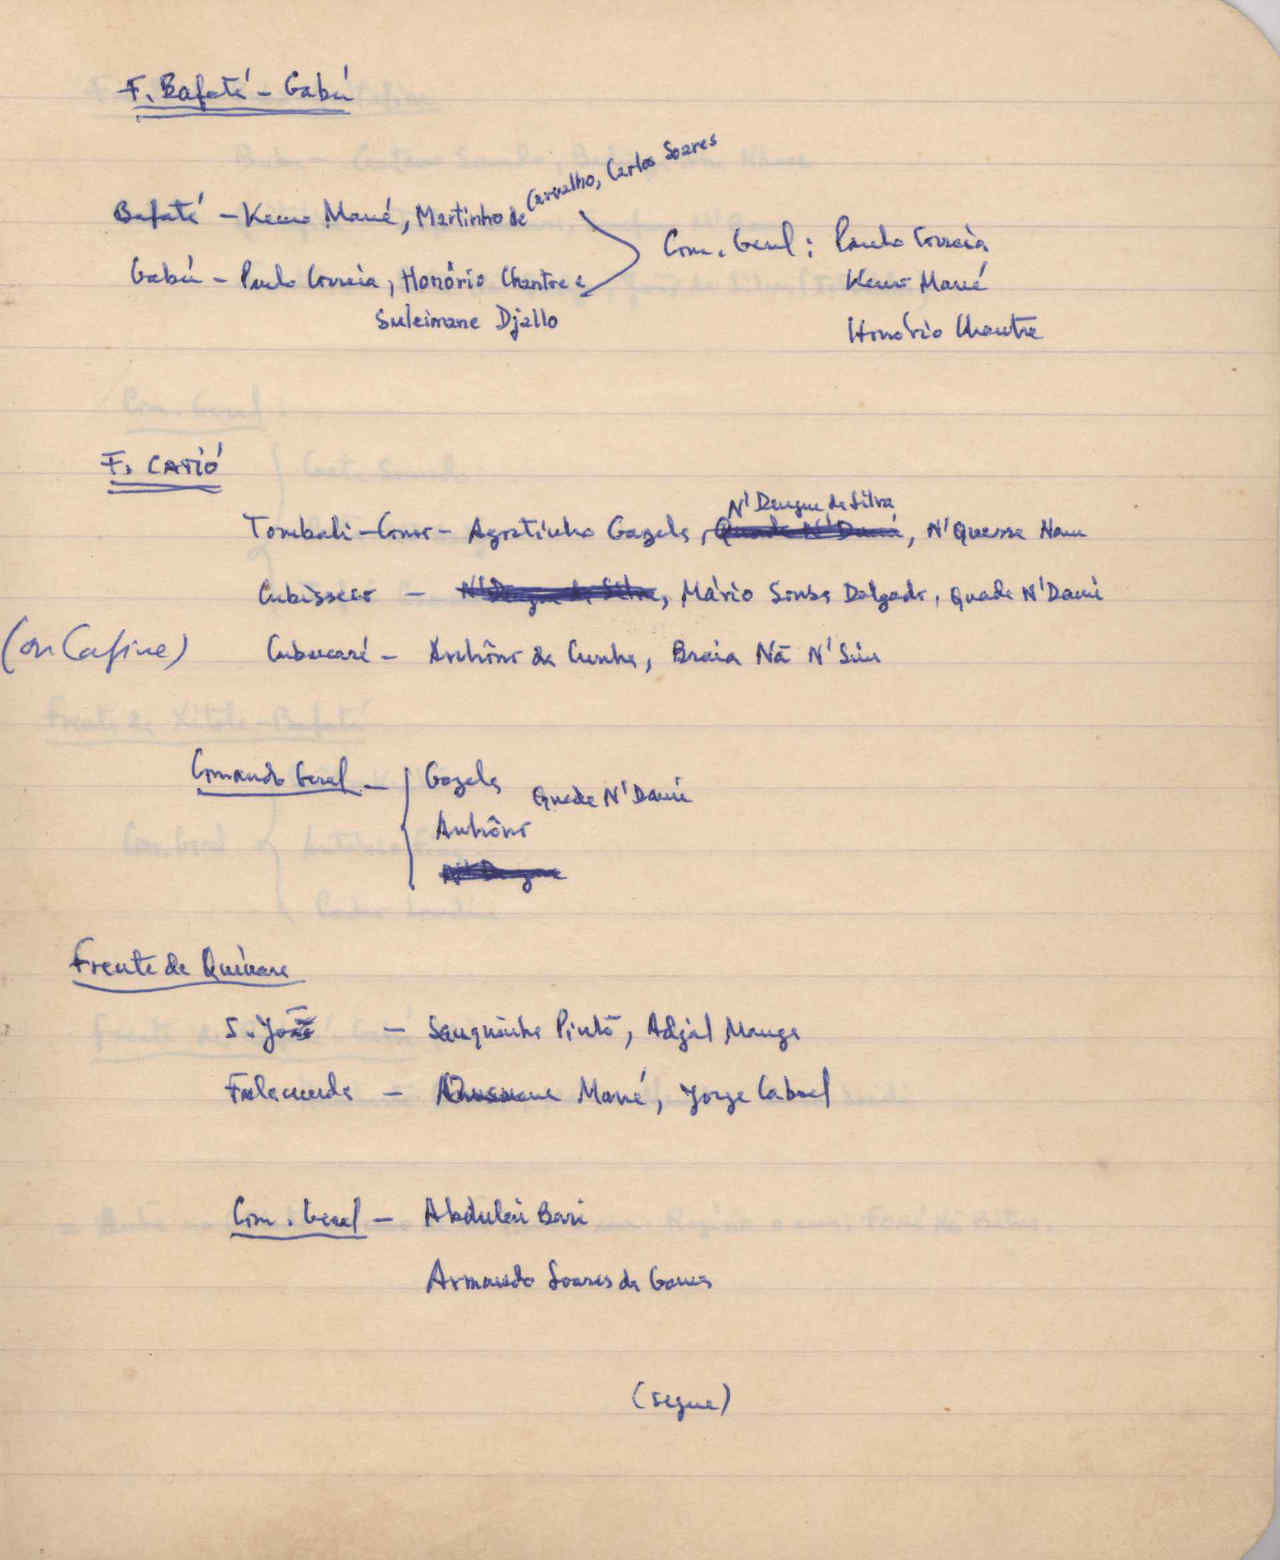 F. Bafatá - Gabú
Bafatá - Keno Mané, Martinho de Carvalho, Carlos Soares
Gabú - Paulo Correia, Honório Chantre e
Suleimane Djallo
Com. Geral: Paulo Correia
Keno Mané
Honório Chantre
F. CATIÓ
N'Dengue da Silva
Tombali-Como - Agostinho Gazela, Quade N'Dami, N'Quessa Nam
Cubisseco - N'Dengue da Silva, Mário Sousa Delgado, Quade N'Dami
(ou Cafine) Cubucaré - António da Cunha, Braia Nã N'
Comando Geral - Gazela
Quade N'Dami
António
N'Dengue
Frente de Quínara
S. João - Sanquinho Pintô, Adjal Manga
Fulacunda - Mané, Jorge Cabral
Com. Geral - Abdulai Bari
Armando Soares da Gama
(segue)